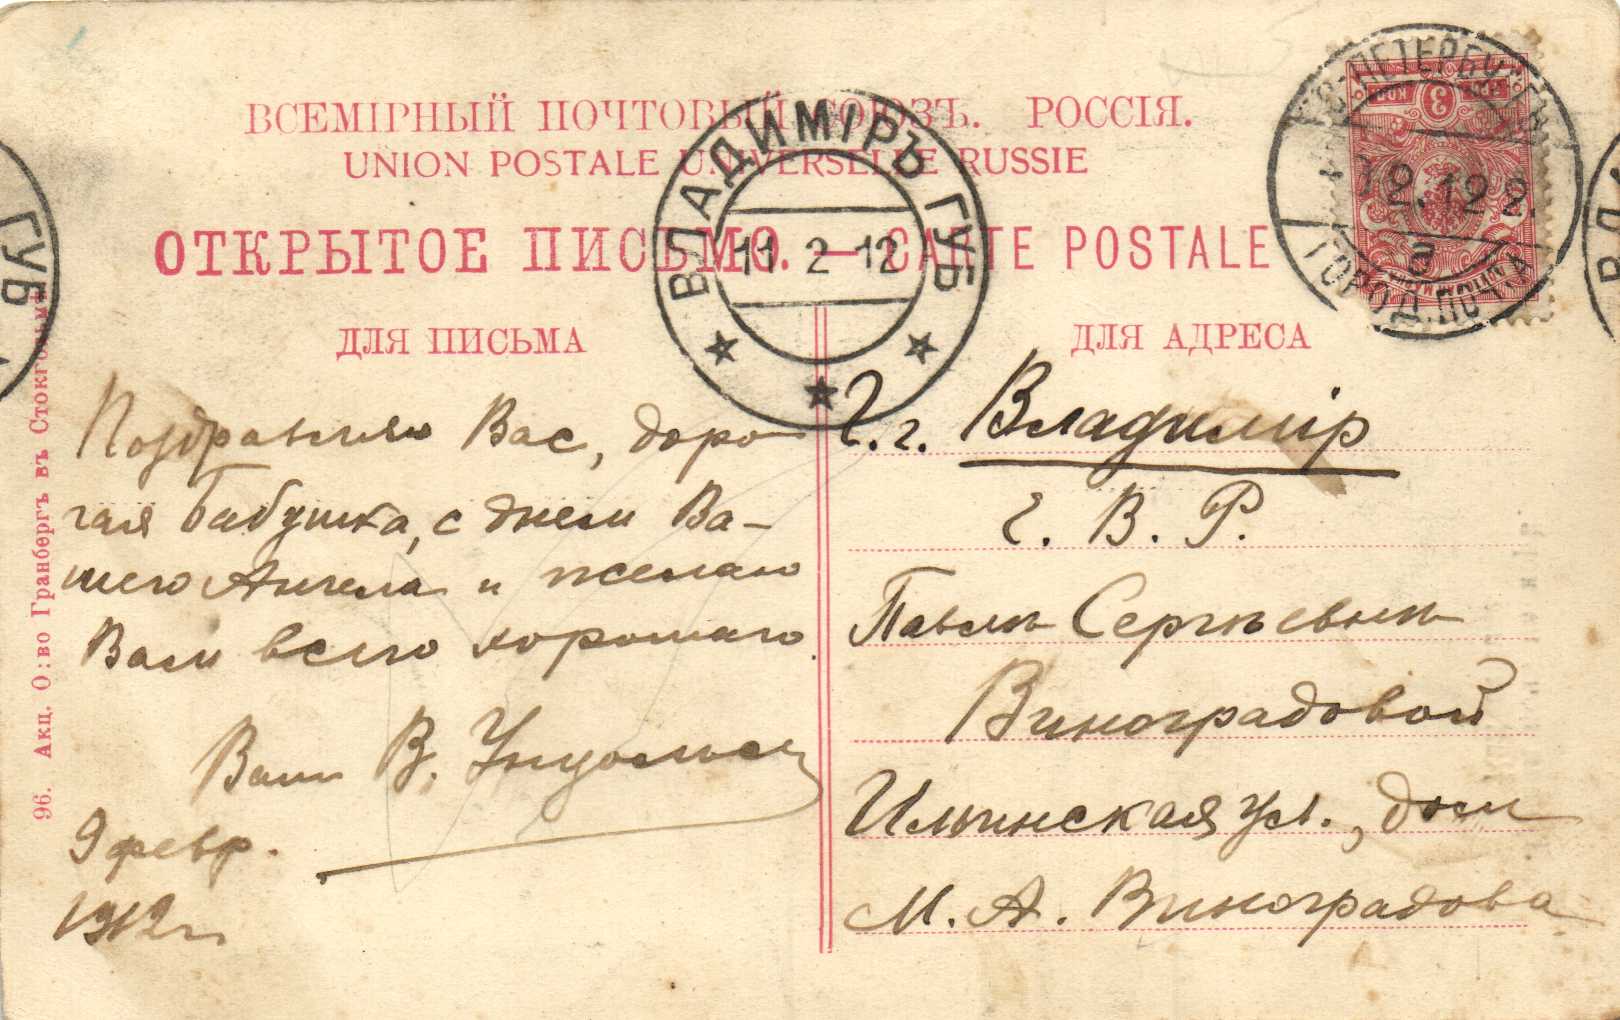 ВСЕМІРНЫЙ ПОЧТОВЫЙ СОЮЗЪ. РОССІЯ.
UNION POSTALE UNIVERSELLE RUSSIE
ОТКРЫТОЕ ПИСЬМО. — CARTE POSTALE
ДЛЯ ПИСЬМА
ДЛЯ АДРЕСА
ВЛАДИМІРЪ ГУБ
11 2 12
С-ПЕТЕРБУРГЪ
9 2.12 2.
ГОРОД.ПОЧТА
3
КОП КОП
ГУБ
ВЛ
96. Акц. О:во Гранбергъ въ Стокгольмѣ
Поздравляю Вас, доро
гая бабушка, с днем Ва-
шего Ангела и желаю
Вам всего хорошаго.
Ваш В.
9 февр.
1912 г.
Г. г. Владимір
Е. В. Р.
Павлѣ Сергѣевнѣ
Виноградовой
Ильинская ул., дом
М. А. Виноградова